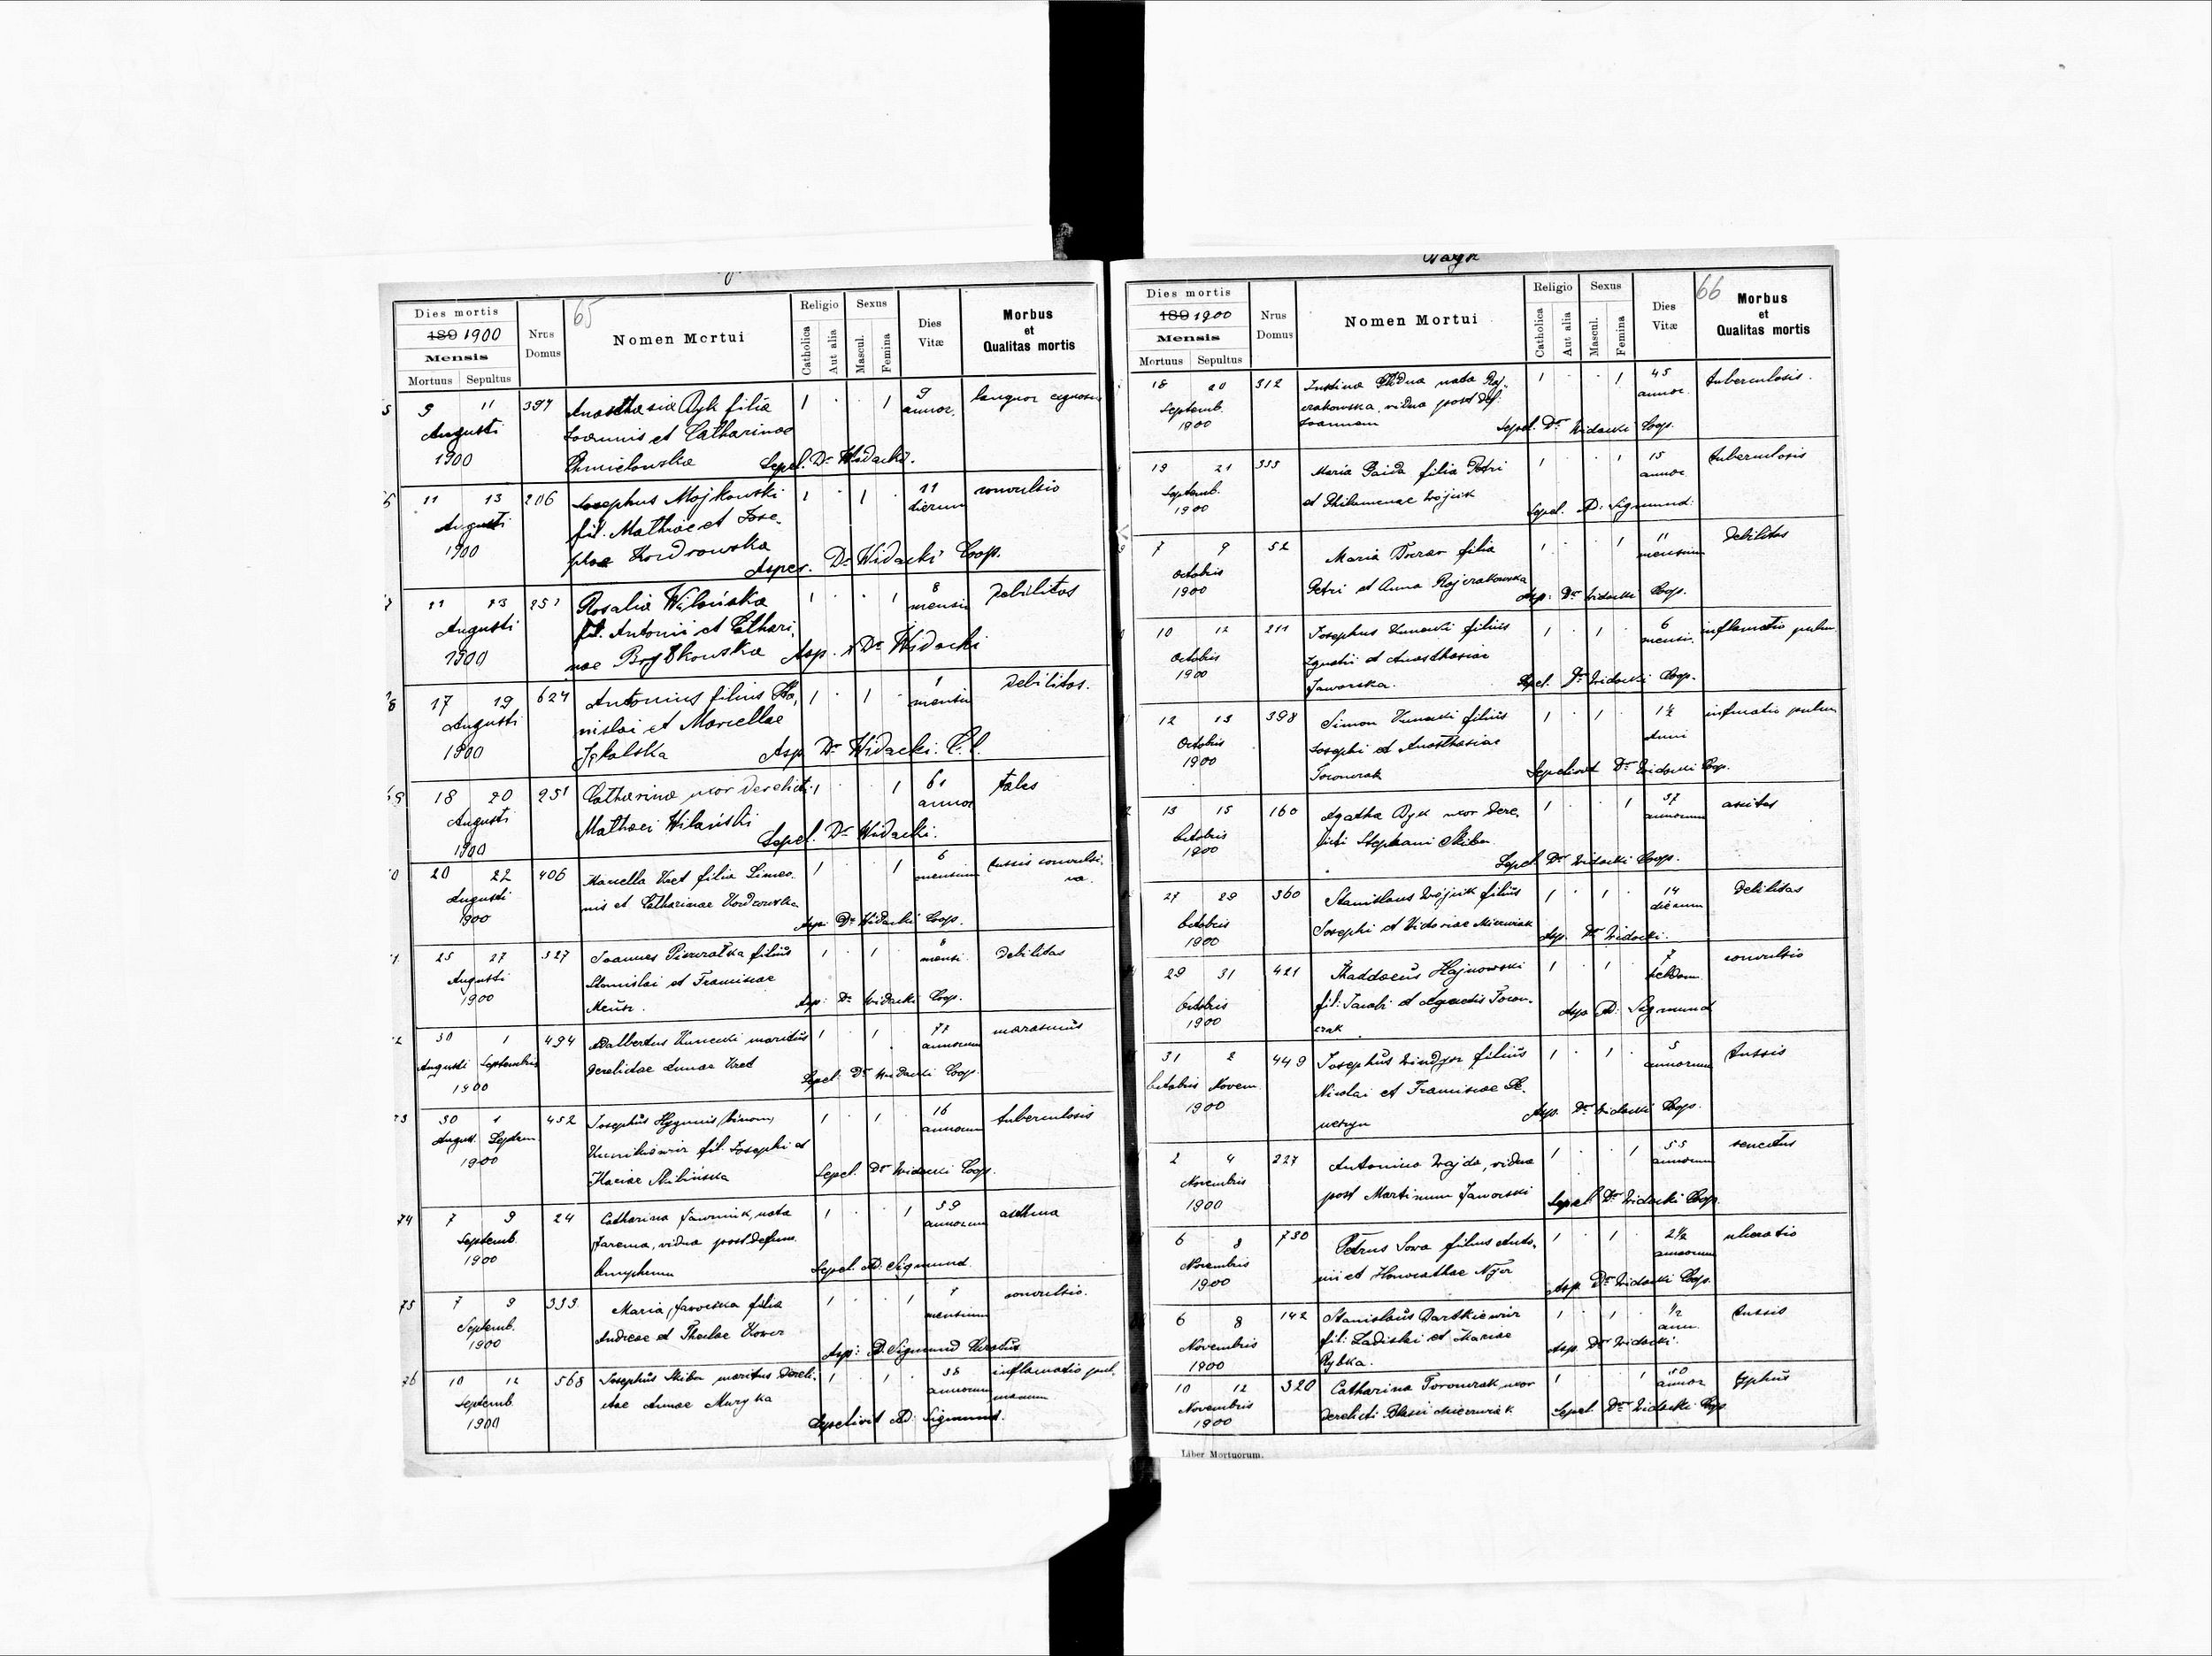 65
Dies mortis
189 1900
Mensis
Mortuus Sepultus
Nrus Domus
Nomen Mortui
Religio
Catholica
Aut alia
Sexus
Mascul.
Femina
Dies Vitæ
Morbus et Qualitas mortis
9 11 397 Anasthasia Dyk filia 1 1 9 languor
Augusti Joannis et Catharinae annor.
1900 Chmielowska Sepel. Dr Widacki.
11 13 206 Josephus Mojkowski 1 1 11 convulsio
Augusti fil. Mathiae et Jose- dierum
1900 phae Kordrowska Asper. Dr Widacki Coop.
21 23 251 Rosalia Wilańska 1 1 8 Debilitas
Augusti fil. Antonii et Cathari- mensiu
1900 nae Asp. Dr Widacki
17 19 624 Antonius filius Sta- 1 1 1 Debilitas.
Augusti nislai et Marcellae mensiu
1900 Asp. Dr Widacki. C.l.
18 20 251 Catharina uxor derelicti 1 1 61 tabes
Augusti Mathaei Wilański annor
1900 Sepel. Dr Widacki.
20 22 406 Marcella Kret filia Simeo- 1 1 6 tussis convulsi-
Augusti nis et Catharinae Kordrowska mensium va.
1900 Asp. Dr Widacki Coop.
25 27 327 Joannes filius 1 1 8 Debilitas
Augusti Stanislai et Franciscae mensi.
1900 Asp. Dr Widacki Coop.
30 1 494 Adalbertus Kunecki maritus 1 1 77 marasmus
Augusti Septembris derelictae Annae Kret annorum
1900 Sepel. Dr Widacki Coop.
30 1 452 Josephus Hyginus (binom) 1 1 16 tuberculosis
August. Septem fil. Josephi et annorum
1900 Mariae Skibińska Sepel. Dr Widacki Coop.
74 7 9 24 Catharina Jawornik, nata 1 1 59 asthma
Septemb. Jarema, vidua post defunc. annorum
1900 Onuphrium Sepel. D. Sigmund.
75 7 9 333 Maria Jaworska filia 1 1 7 convulsio.
Septemb. Andreae et Theclae mensium
1900 Asp: D. Sigmund
76 10 12 568 Josephus Skiba maritus dereli- 1 1 38 inflamatio pul-
Septemb. ctae Annae Muryka annorum monum
1900 Sepelivit D. Sigmund.
66
Dies mortis
189 1900
Mensis
Mortuus Sepultus
Nrus Domus
Nomen Mortui
Religio
Catholica
Aut alia
Sexus
Mascul.
Femina
Dies Vitæ
Morbus et Qualitas mortis
18 20 312 Justina nata Raj- 1 1 45 tuberculosis.
Septemb. czakowska, vidua post def. annor.
1900 Joannem Sepel. Dr Widacki Coop.
19 21 333 Maria Gaida filia Petri 1 1 15 tuberculosis
Septemb. et Philomenae Wójcik annor
1900 Sepel. D. Sigmund.
7 9 52 Maria filia 1 1 11 Debilitas
Octobris Petri et Anna Rajczakowska mensium
1900 Asp: Dr Widacki Coop.
10 12 211 Josephus Kunecki filius 1 1 6 inflamatio pulm
Octobris Ignatii et Anasthasiae mensiu.
1900 Jaworska. Sepel. Dr Widacki Coop.
12 13 398 Simon Kunecki filius 1 1 1½ pulm
Octobris Josephi et Anasthasiae Anni
1900 Toronczak Sepelivit Dr Widacki Coop.
13 15 160 Agatha Dyk uxor dere- 1 1 37 ascites
Octobris licti Stephani Skiba annorum
1900 Sepel. Dr Widacki Coop.
27 29 360 Stanislaus Wójcik filius 1 1 14 Debilitas
Octobris Josephi et Victoriae dierum
1900 Asp. Dr Widacki.
29 31 421 Thaddaeus Hajnowski 1 1 7 convulsio
Octobris fil: Jacobi et Agnetis Toron- hebdom.
1900 czak Asp. D. Sigmund
31 2 449 Josephus filius 1 1 5 tussis
Octobris Novem. Nicolai et Franciscae annorum
1900 Asp. Dr Widacki Coop.
2 4 227 Antonina Wajda, vidua 1 1 55 senectus
Novembris post Martinum Jaworski annorum
1900 Sepel Dr Widacki Coop.
6 8 730 Petrus Sowa filius Anto- 1 1 2½ ulceratio
Novembris nii et Honorathae annorum
1900 Asp. Dr Widacki Coop.
6 8 142 Stanislaus Bartkiewicz 1 1 ½ tussis
Novembris fil: Ladislai et Mariae ann.
1900 Rybka. Asp. Dr Widacki.
10 12 320 Catharina Toronczak uxor 1 1 50 typhus
Novembris derelicti Blasii annor
1900 Sepel Dr Widacki Coop
Liber Mortuorum.